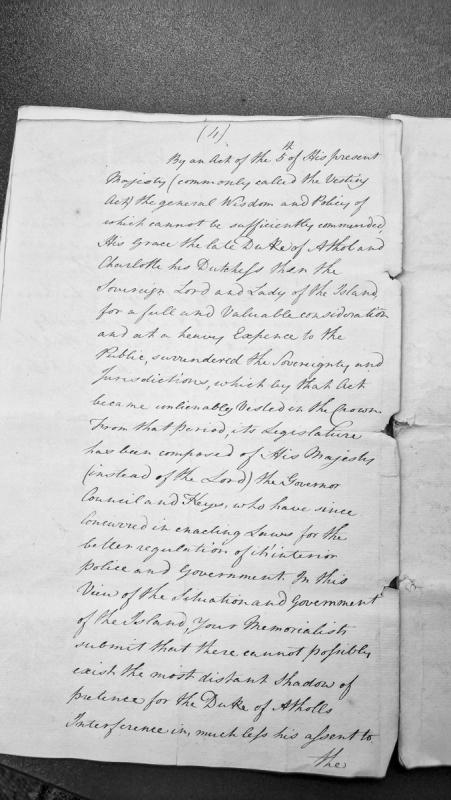 (4)
By an Act of the 5th of His present
Majesty (commonly called the Vesting
Act) the general Wisdom and Policy of
which cannot be sufficiently commended,
His Grace the late Duke of Athol and
Charlotte his Dutchess then the
Sovereign Lord and Lady of the Island,
for a full and Valuable consideration
and at a heavy Expence to the
Public, surrendered the Sovereignty and
Jurisdictions, which by that Act
became unalienably Vested in the Crown.
From that period, its Legislature
has been composed of His Majesty
(instead of the Lord) the Governor
Council and Keys, who have since
Concurred in enacting Laws for the
better regulation of it's interior
police and Government. In this
View of the Situation and Government
of the Island, Your Memorialists
submit that there cannot possibly
exist the most distant Shadow of
pretence for the Duke of Atholls
Interference in, much less his assent to
the